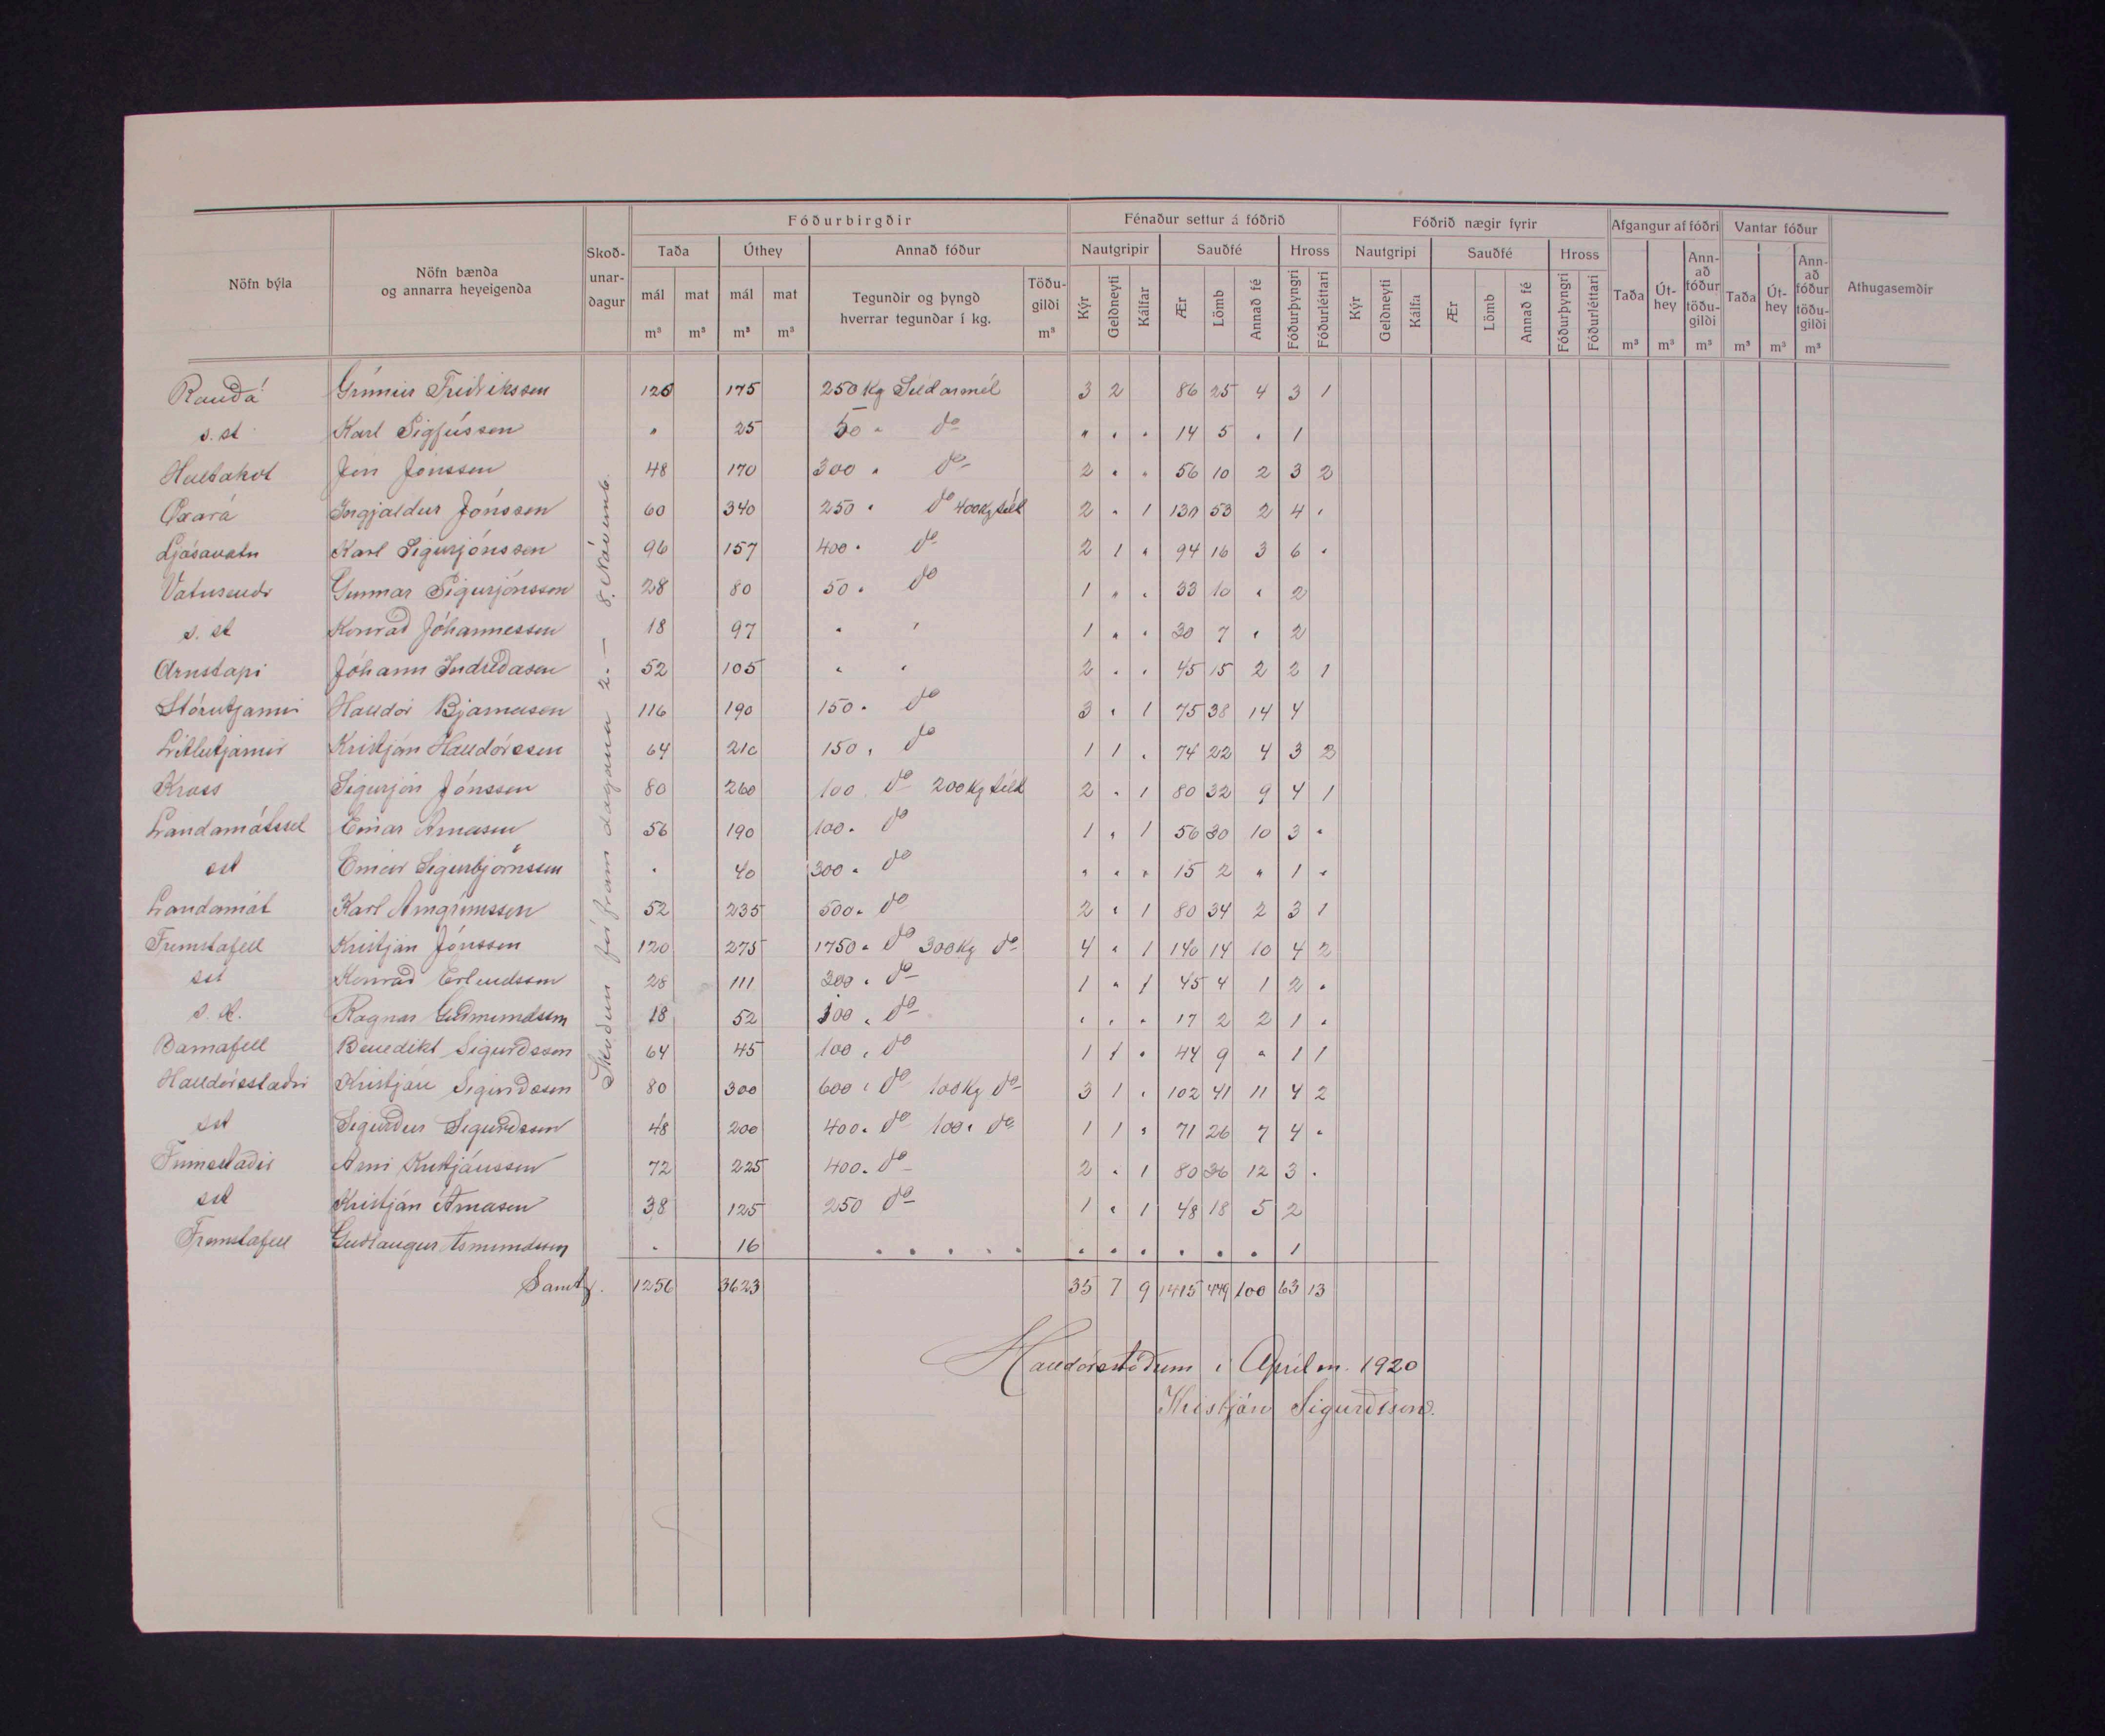 Fóðurbirgðir Fénaður settur á fóðrið Fóðrið nægir fyrir Afgangur af fóðri Vantar fóður
Nöfn býla Nöfn bænda og annarra heyeigenda Skoðunardagur Taða Úthey Annað fóður Nautgripir Sauðfé Hross Nautgripi Sauðfé Hross Taða Úthey Annað fóður töðugildi Taða Úthey Annað fóður töðugildi Athugasemdir
mál mat mál mat Tegundir og þyngd hverrar tegundar í kg. Töðugildi Kýr Geldneyti Kálfar Ær Lömb Annað fé Fóðurþyngri Fóðurléttari Kýr Geldneyti Kálfa Ær Lömb Annað fé Fóðurþyngri Fóðurléttari
m³ m³ m³ m³ m³ m³ m³ m³ m³ m³ m³
Skoðun fór fram dagana 2. — 8. Nóvemb.
Rauðá Grímur Friðriksson 120 175 250 Kg Síldarmél 3 2 86 25 4 3 1
s. st Karl Sigfússon " 25 50 " do " " " 14 5 " 1
Hallakot Jón Jónsson 48 170 300 " do 2 " " 56 10 2 3 2
Oxará Ingjaldur Jónsson 60 340 250 " do 400 Kg síld 2 " 1 130 53 2 4 "
Ljósavatn Karl Sigurjónsson 96 157 400 " do 2 1 " 94 16 3 6 "
Vatnsendi Gunnar Sigurjónsson 28 80 50 " do 1 " " 33 10 " 2
s. st Konrað Jóhannesson 18 97 " " 1 " " 30 7 " 2
Arnstapi Jóhann Indriðason 52 105 " " 2 " " 45 15 2 2 1
Stórutjarnir Halldór Bjarnason 116 190 150 " do 3 " 1 75 38 14 4
Litlutjarnir Kristján Halldórsson 64 210 150 " do 1 1 " 74 22 4 3 2
Kross Sigurjón Jónsson 80 260 100 do 200 Kg síld 2 " 1 80 32 9 4 1
Landamótssel Einar Árnason 56 190 100 " do 1 " 1 56 30 10 3 "
sst Einar Sigurbjörnsson " 40 300 " do " " " 15 2 " 1 "
Landamót Karl Arngrímsson 52 235 500 " do 2 " 1 80 34 2 3 1
Fremstafell Kristján Jónsson 120 275 1750 " do 300 Kg do 4 " 1 140 14 10 4 2
sst Konrað Erlendsson 28 111 300 " do 1 " 1 45 4 1 2 "
s. st. Ragnar Guðmundssen 18 52 300 " do " " " 17 2 2 1 "
Barnafell Benedikt Sigurðsson 64 45 100 " do 1 1 " 44 9 " 1 1
Halldórsstaðir Kristján Sigurðsson 80 300 600 " do 100 Kg do 3 1 " 102 41 11 4 2
sst Sigurður Sigurðsson 48 200 400 " do 100 " do 1 1 " 71 26 7 4 "
Finnsstaðir Árni Kristjánsson 72 225 400 " do 2 " 1 80 36 12 3 "
sst Kristján Árnason 38 125 250 do 1 " 1 48 18 5 2
Fremstafell Guðlaugur Ásmundsson " 16 " " " " " " " " " " " 1
Samt. 1256 3623 35 7 9 1415 449 100 63 13
Halldórsstöðum í Apríl m. 1920
Kristján Sigurðsson.